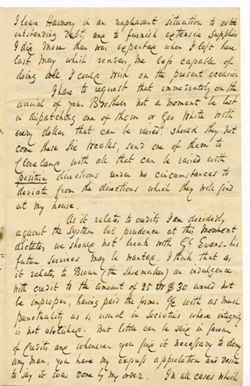 I leave Harmony in an unpleasant situation to settle
outstanding Debts, and to furnish extensive supplies
I did more than was expected when I left here
last May which renders me less capable of
doing all I could wish on the present occasion
I have to request that immediately on the
arrival of your Brothers not a moment be lost
in dispatching one of them or Geo White with
every dollar that can be raised should they not
come these six weeks, send one of them to
Cleveland with all that can be raised with
positive directions under no circumstances to
deviate from the directions which they will find
at my house.
As it relates to credits I am decidedly
against the System but prudence at this moment
dictates, we should not break with Evans. his
future services may be wanted. I think that as
it relates to Brown (the Shoemaker) an indulgence
with credit to the amount of 25 or $30 would not
be improper, having paid the former with as much
punctuality as is usual in Societies where integrity
is not wanting. But little can be said in favor
of Credits and whenever you find it necessary to deny
any man, you have my express approbation and desire
to say it was done by my order. In all cases which